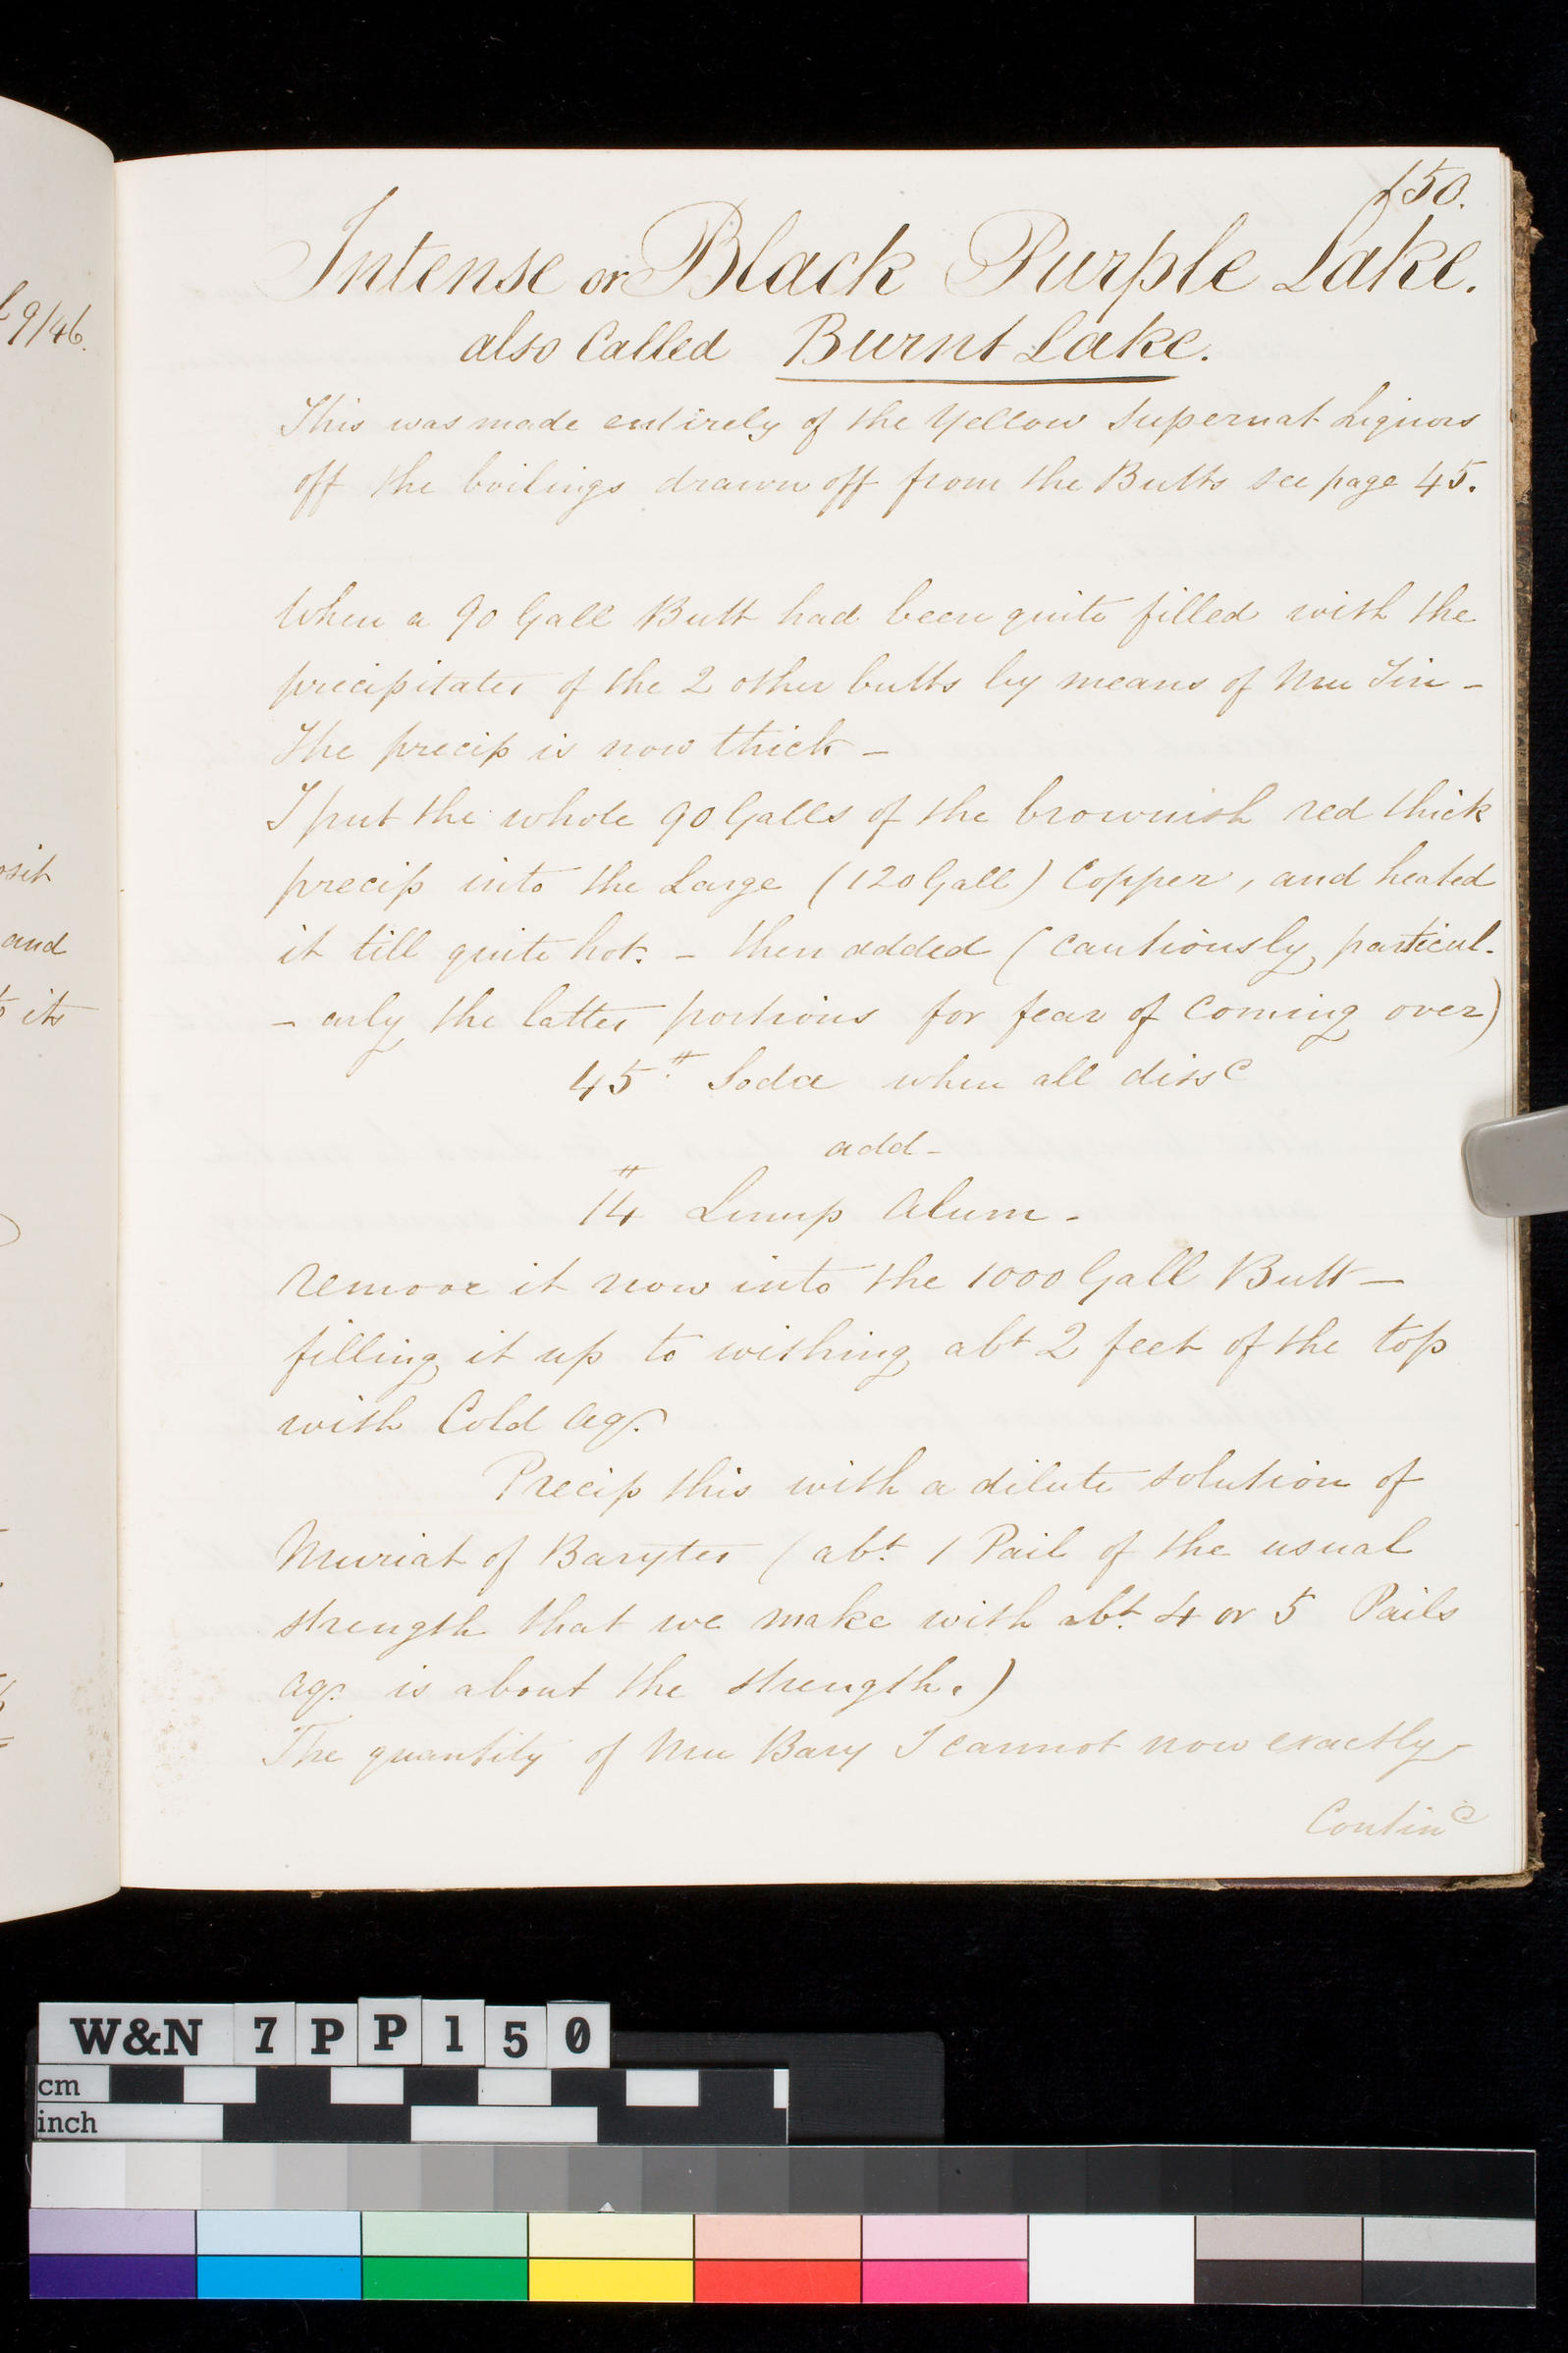 150.
Intense or Black Purple Lake.
also Called Burnt Lake.
This was made entirely of the Yellow Supernat Liquors
off the boilings drawn off from the Butts see page 45.
When a 90 Gall Butt had been quite filled with the
precipitates of the 2 other butts by means of Mu Tin -
The precip is now thick -
I put the whole 90 Galls of the brownish red thick
precip into the Large (120 Gall) Copper, and heated
it till quite hot. - then added (cautiously, particul-
- arly the latter portions for fear of coming over)
45 # Soda when all dissd
add -
#
14 Lump Alum -
remove it now into the 1000 Gall Butt -
filling it up to withing abt 2 feet of the top
with Cold Aq.
Precip this with a dilute solution of
Muriat of Barytes (abt. 1 Pail of the usual
strength that we make with abt. 4 or 5 Pails
aq. is about the strength.)
The quantity of Mu Bary I cannot now exactly -
Contind
9/46.
osit
and
its
W&N 7PP150
cm
inch